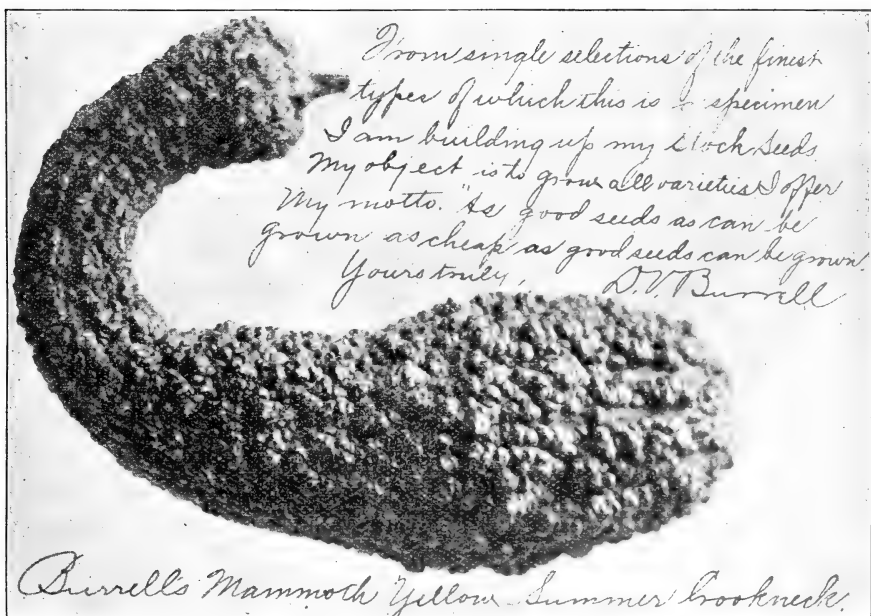 From single selections of the finest
types of which this is a specimen
I am building up my stock seeds
My object is to grow all varieties I offer
My motto. "As good seeds as can be
grown as cheap as good seeds can be grown.
Yours truly, D.V. Burrell
Burrell's Mammoth Yellow Summer Crookneck